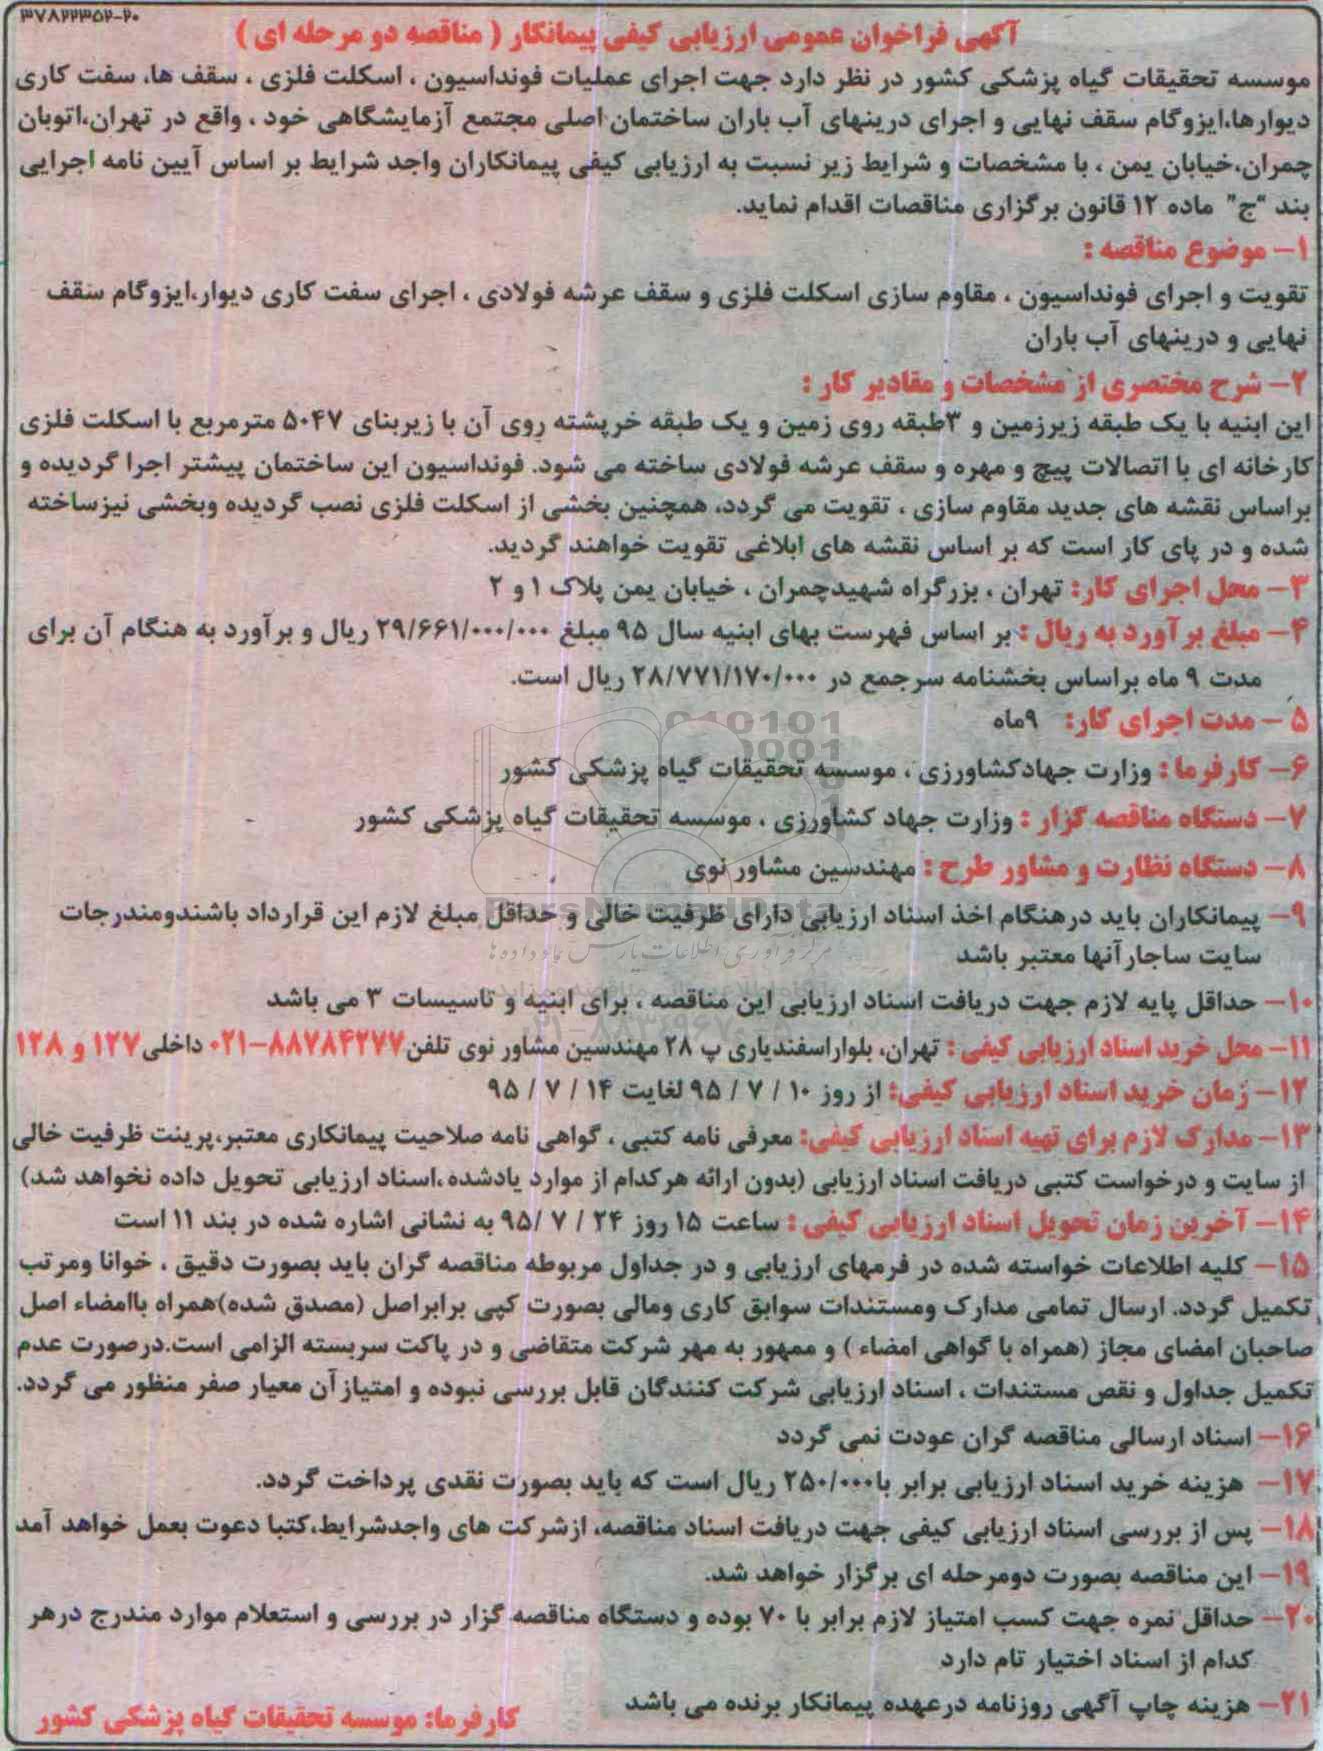 ۳۷۸۲۲۳۵۲-۲۰
آگهی فراخوان عمومی ارزیابی کیفی پیمانکار ( مناقصه دو مرحله ای )
موسسه تحقیقات گیاه پزشکی کشور در نظر دارد جهت اجرای عملیات فونداسیون ، اسکلت فلزی ، سقف ها، سفت کاری
دیوارها،ایزوگام سقف نهایی و اجرای درینهای آب باران ساختمان اصلی مجتمع آزمایشگاهی خود ، واقع در تهران،اتوبان
چمران،خیابان یمن ، با مشخصات و شرایط زیر نسبت به ارزیابی کیفی پیمانکاران واجد شرایط بر اساس آیین نامه اجرایی
بند "ج" ماده ۱۲ قانون برگزاری مناقصات اقدام نماید.
۱- موضوع مناقصه :
تقویت و اجرای فونداسیون ، مقاوم سازی اسکلت فلزی و سقف عرشه فولادی ، اجرای سفت کاری دیوار،ایزوگام سقف
نهایی و درینهای آب باران
۲- شرح مختصری از مشخصات و مقادیر کار :
این ابنیه با یک طبقه زیرزمین و ۳طبقه روی زمین و یک طبقه خرپشته روی آن با زیربنای ۵۰۴۷ مترمربع با اسکلت فلزی
کارخانه ای با اتصالات پیچ و مهره و سقف عرشه فولادی ساخته می شود. فونداسیون این ساختمان پیشتر اجرا گردیده و
براساس نقشه های جدید مقاوم سازی ، تقویت می گردد، همچنین بخشی از اسکلت فلزی نصب گردیده وبخشی نیزساخته
شده و در پای کار است که بر اساس نقشه های ابلاغی تقویت خواهند گردید.
۳- محل اجرای کار: تهران ، بزرگراه شهیدچمران ، خیابان یمن پلاک ۱ و ۲
۴- مبلغ برآورد به ریال : بر اساس فهرست بهای ابنیه سال ۹۵ مبلغ ۲۹/۶۶۱/۰۰۰/۰۰۰ ریال و برآورد به هنگام آن برای
مدت ۹ ماه براساس بخشنامه سرجمع در ۲۸/۷۷۱/۱۷۰/۰۰۰ ریال است.
۵ - مدت اجرای کار: ۹ماه
۶- کارفرما : وزارت جهادکشاورزی ، موسسه تحقیقات گیاه پزشکی کشور
۷- دستگاه مناقصه گزار : وزارت جهاد کشاورزی ، موسسه تحقیقات گیاه پزشکی کشور
۸- دستگاه نظارت و مشاور طرح : مهندسین مشاور نوی
۹- پیمانکاران باید درهنگام اخذ اسناد ارزیابی دارای ظرفیت خالی و حداقل مبلغ لازم این قرارداد باشندومندرجات
سایت ساجارآنها معتبر باشد
۱۰- حداقل پایه لازم جهت دریافت اسناد ارزیابی این مناقصه ، برای ابنیه و تاسیسات ۳ می باشد
۱۱- محل خرید اسناد ارزیابی کیفی : تهران، بلواراسفندیاری پ ۲۸ مهندسین مشاور نوی تلفن۸۸۷۸۴۲۷۷-۰۲۱ داخلی ۱۲۷ و ۱۲۸
۱۲- زمان خرید اسناد ارزیابی کیفی: از روز ۱۰ / ۷ / ۹۵ لغایت ۱۴ / ۷ / ۹۵
۱۳- مدارک لازم برای تهیه اسناد ارزیابی کیفی: معرفی نامه کتبی ، گواهی نامه صلاحیت پیمانکاری معتبر،پرینت ظرفیت خالی
از سایت و درخواست کتبی دریافت اسناد ارزیابی (بدون ارائه هرکدام از موارد یادشده ،اسناد ارزیابی تحویل داده نخواهد شد)
۱۴- آخرین زمان تحویل اسناد ارزیابی کیفی : ساعت ۱۵ روز ۲۴ / ۷ / ۹۵ به نشانی اشاره شده در بند ۱۱ است
۱۵- کلیه اطلاعات خواسته شده در فرمهای ارزیابی و در جداول مربوطه مناقصه گران باید بصورت دقیق ، خوانا ومرتب
تکمیل گردد. ارسال تمامی مدارک ومستندات سوابق کاری ومالی بصورت کپی برابراصل (مصدق شده)همراه باامضاء اصل
صاحبان امضای مجاز (همراه با گواهی امضاء ) و ممهور به مهر شرکت متقاضی و در پاکت سربسته الزامی است.درصورت عدم
تکمیل جداول و نقص مستندات ، اسناد ارزیابی شرکت کنندگان قابل بررسی نبوده و امتیاز آن معیار صفر منظور می گردد.
۱۶- اسناد ارسالی مناقصه گران عودت نمی گردد
۱۷- هزینه خرید اسناد ارزیابی برابر با۲۵۰/۰۰۰ ریال است که باید بصورت نقدی پرداخت گردد.
۱۸- پس از بررسی اسناد ارزیابی کیفی جهت دریافت اسناد مناقصه، ازشرکت های واجدشرایط،کتبا دعوت بعمل خواهد آمد
۱۹- این مناقصه بصورت دومرحله ای برگزار خواهد شد.
۲۰- حداقل نمره جهت کسب امتیاز لازم برابر با ۷۰ بوده و دستگاه مناقصه گزار در بررسی و استعلام موارد مندرج درهر
کدام از اسناد اختیار تام دارد
۲۱- هزینه چاپ آگهی روزنامه درعهده پیمانکار برنده می باشد
کارفرما: موسسه تحقیقات گیاه پزشکی کشور
ParsNamadData